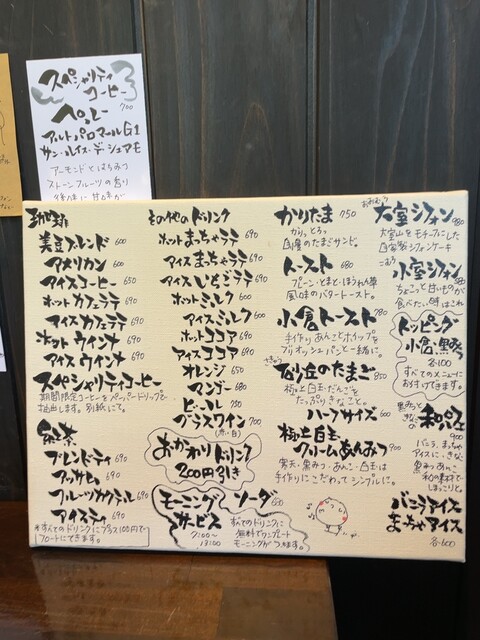 スペシャリティ
コーヒー
ペルー 700
アルトパロマールG1
サン・ルイス・デ・シュアモ
アーモンドとはちみつ
ストーンフルーツの香り
珈琲
美豆ブレンド 600
アメリカン 600
アイスコーヒー 650
ホットカフェラテ 690
アイスカフェラテ 690
ホットウインナ 690
アイスウインナ 690
スペシャリティコーヒー
期間限定コーヒーをペーパードリップで
抽出します。別紙にて。
紅茶
ブレンドティ 690
アッサム 690
フルーツカクテル 690
アイスティ 690
*すべてのドリンクにプラス100円で
フロートにできます。
その他のドリンク
ホットまっちゃラテ 690
アイスまっちゃラテ 690
アイスいちごラテ 690
ホットミルク 600
アイスミルク 600
ホットココア 690
アイスココア 690
オレンジ 650
マンゴー 680
ビール 750
グラスワイン 700
(赤・白)
おかわりドリンク
200円引き
モーニング
サービス
7:00〜
13:00
ソーダ 650
すべてのドリンクに
無料でワンプレート
モーニングがつきます。
かりたま 850
かりっ、とろっ
自慢のたまごサンド。
トースト 680
プレーン・とまと・ほうれん草
風味のバタートースト。
小倉トースト 780
手作りあんことホイップを
ブリオッシュパンと一緒に。
砂丘のたまご 850
さきゅう
極上白玉だんごを
たっぷりきなこと。
ハーフサイズ 600
極上白玉
クリームあんみつ 900
寒天・黒みつ・あんこ・白玉は
手作りにこだわってシンプルに。
おおむろ
大室シフォン 980
大室山をモチーフにした
自家製シフォンケーキ
こむろ
小室シフォン 580
ちょこっと甘いものが
食べたい時はこれ
トッピング
小倉・黒みつ
各100
すべてのメニューに
お付けできます。
黒みつと
きなこの
和パフェ 900
バニラ、まっちゃ
アイスに、きなこ
黒みつ、あんこ
和の素材で
ほっこりと。
バニラアイス
まっちゃアイス
各600